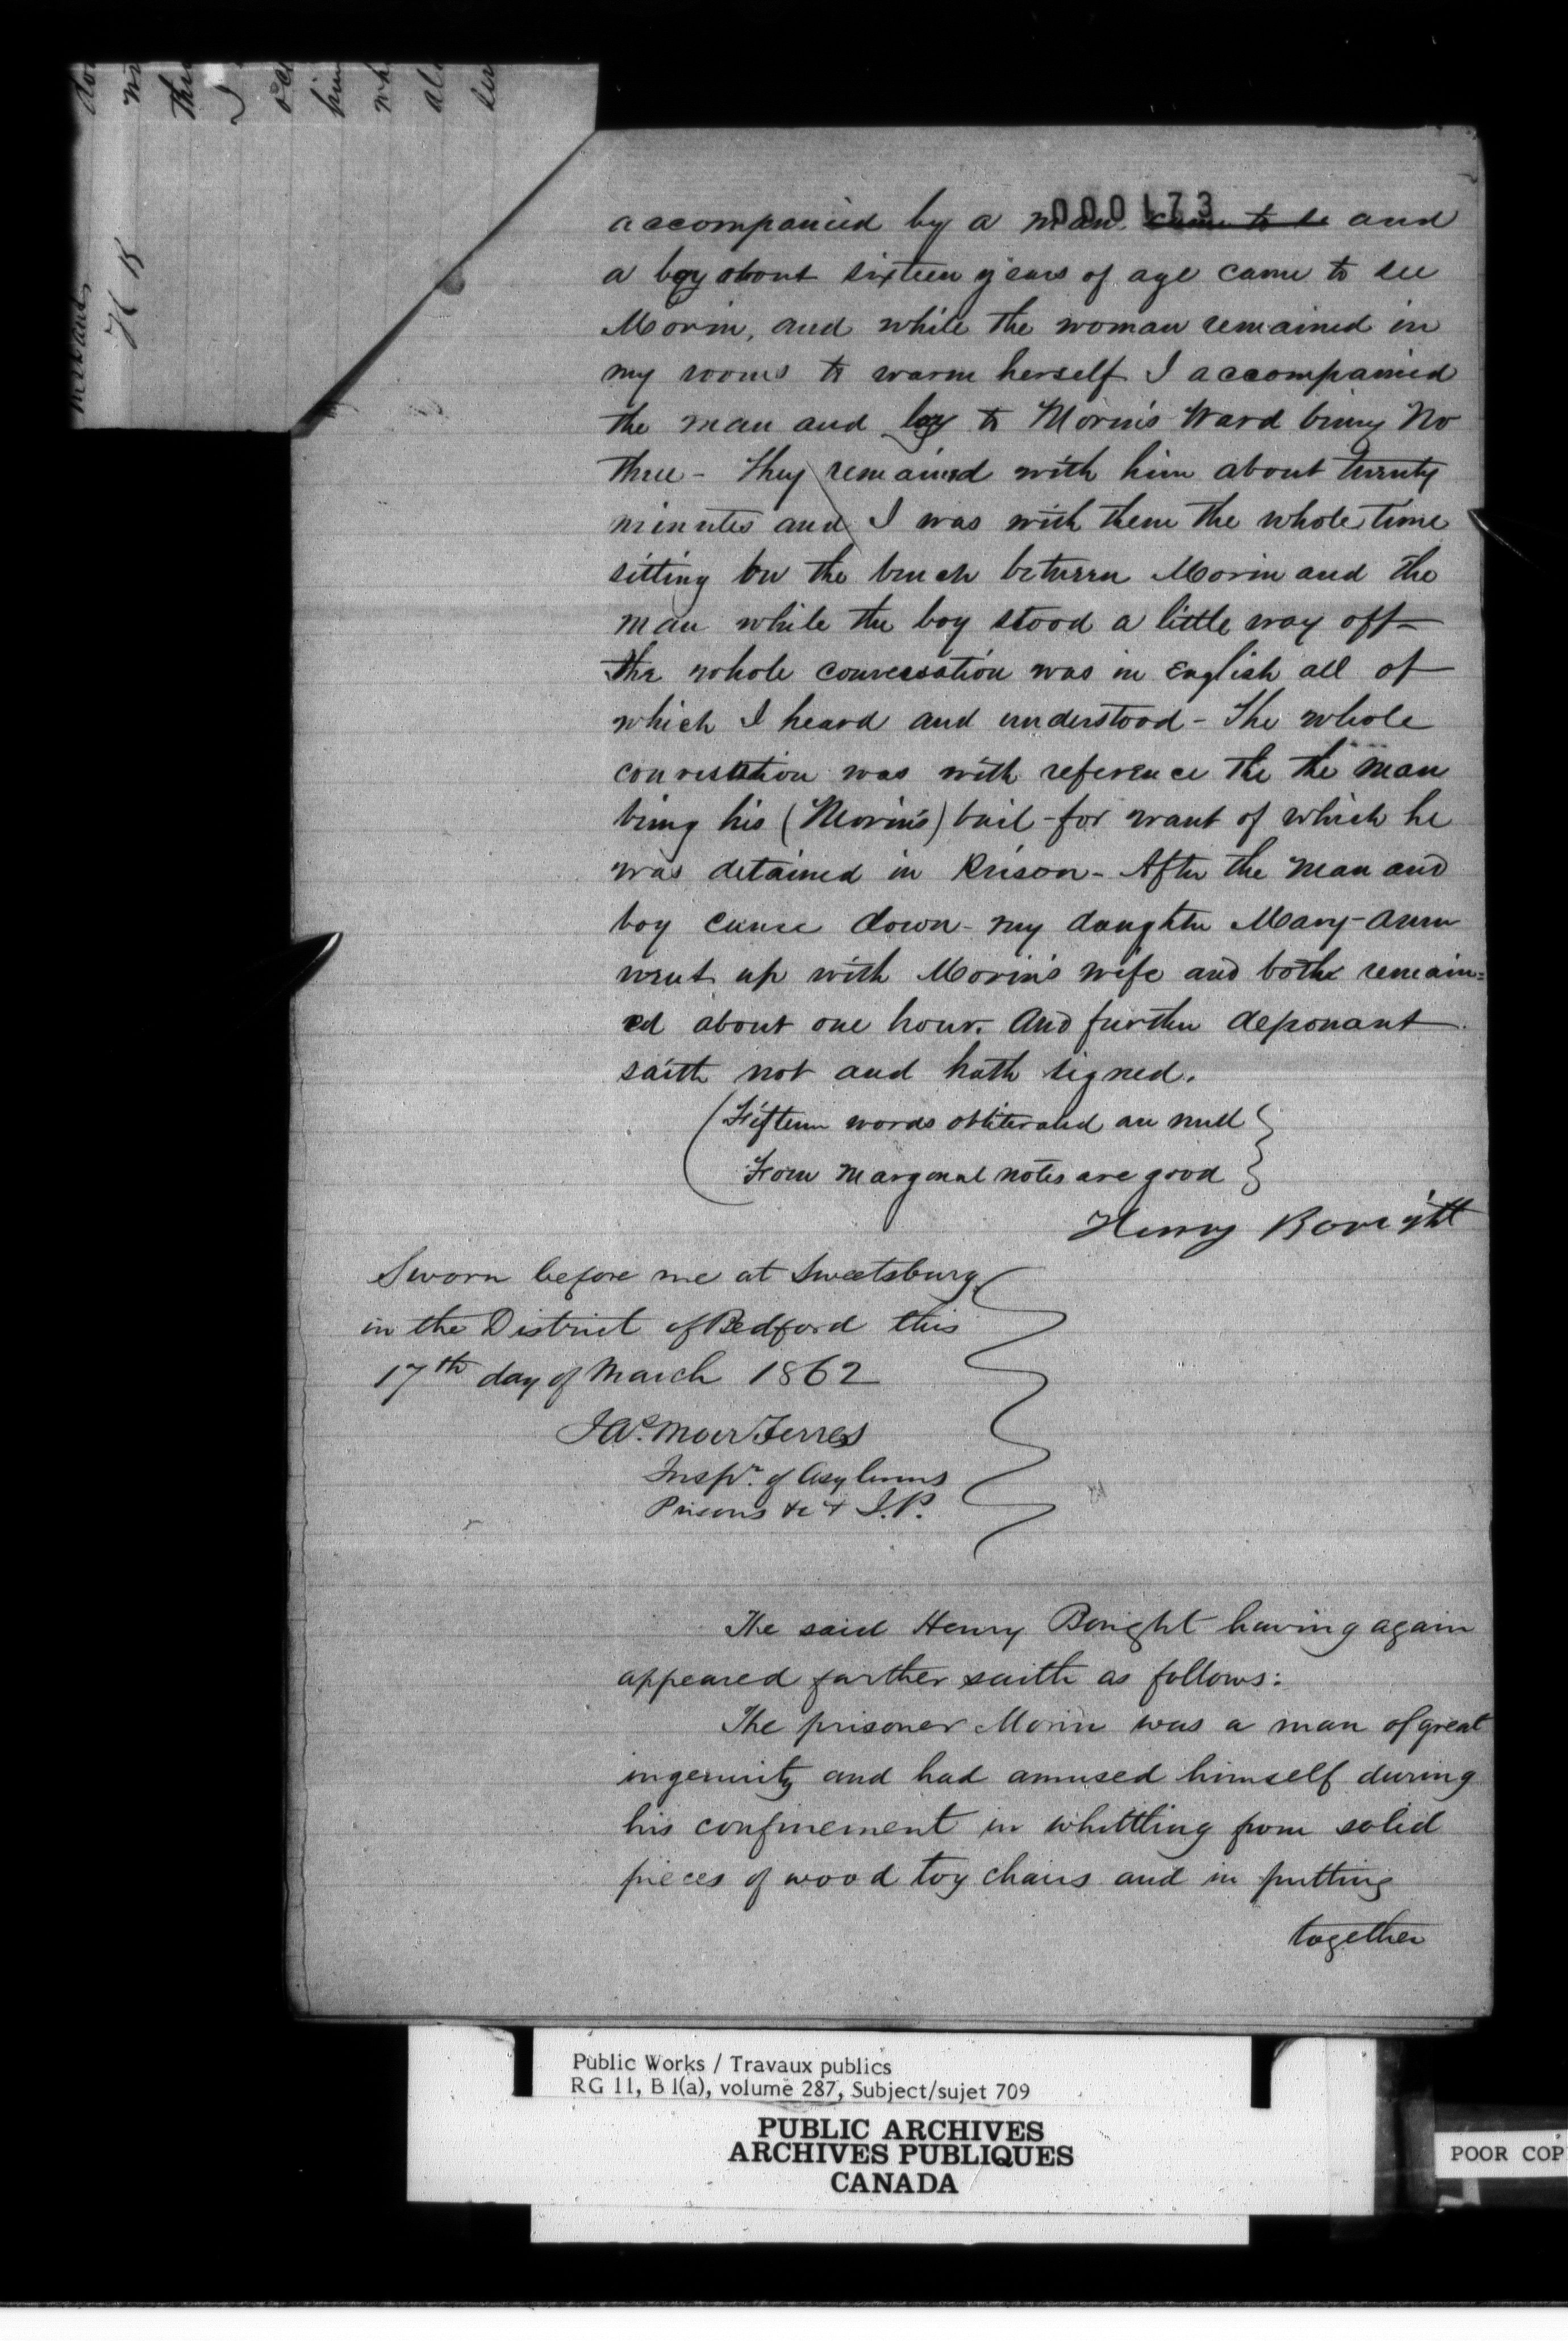 000173
accompanied by a man came to se and
a boy about sixteen years of age came to see
Morin, and while the woman remained in
my rooms to warm herself I accompained
the man and boy to Morin's Ward being No
three - They remained with him about twenty
minutes and I was with them the whole time
sitting on the bench between Morin and the
man while the boy stood a little way off -
the whole conversation was in English all of
which I heard and understood - The whole
conversation was with reference the the man
being his (Morin's) bail - for want of which he
was detained in Prison - After the man and
boy came down - my daughter Mary-Ann
went up with Morin's wife and both remain=
ed about one hour. And further deponant
saith not and hath signed.
(Fifteen words obliterated are null }
From marginal notes are good }
Henry Boright
Sworn before me at Sweetsburg
in the District of Bedford this
17th day of March 1862
Jas. Moir Ferres
Inspr. of Asylums
Prisons &c & J.P.
The said Henry Boright having again
appeared further saith as follows:
The prisoner Morin was a man of great
ingenuity and had amused himself during
his confinement in whittling from solid
pieces of wood toy chairs and in putting
together
H B
Public Works / Travaux publics
RG 11, B 1(a), volume 287, Subject/sujet 709
PUBLIC ARCHIVES
ARCHIVES PUBLIQUES
CANADA
POOR COP